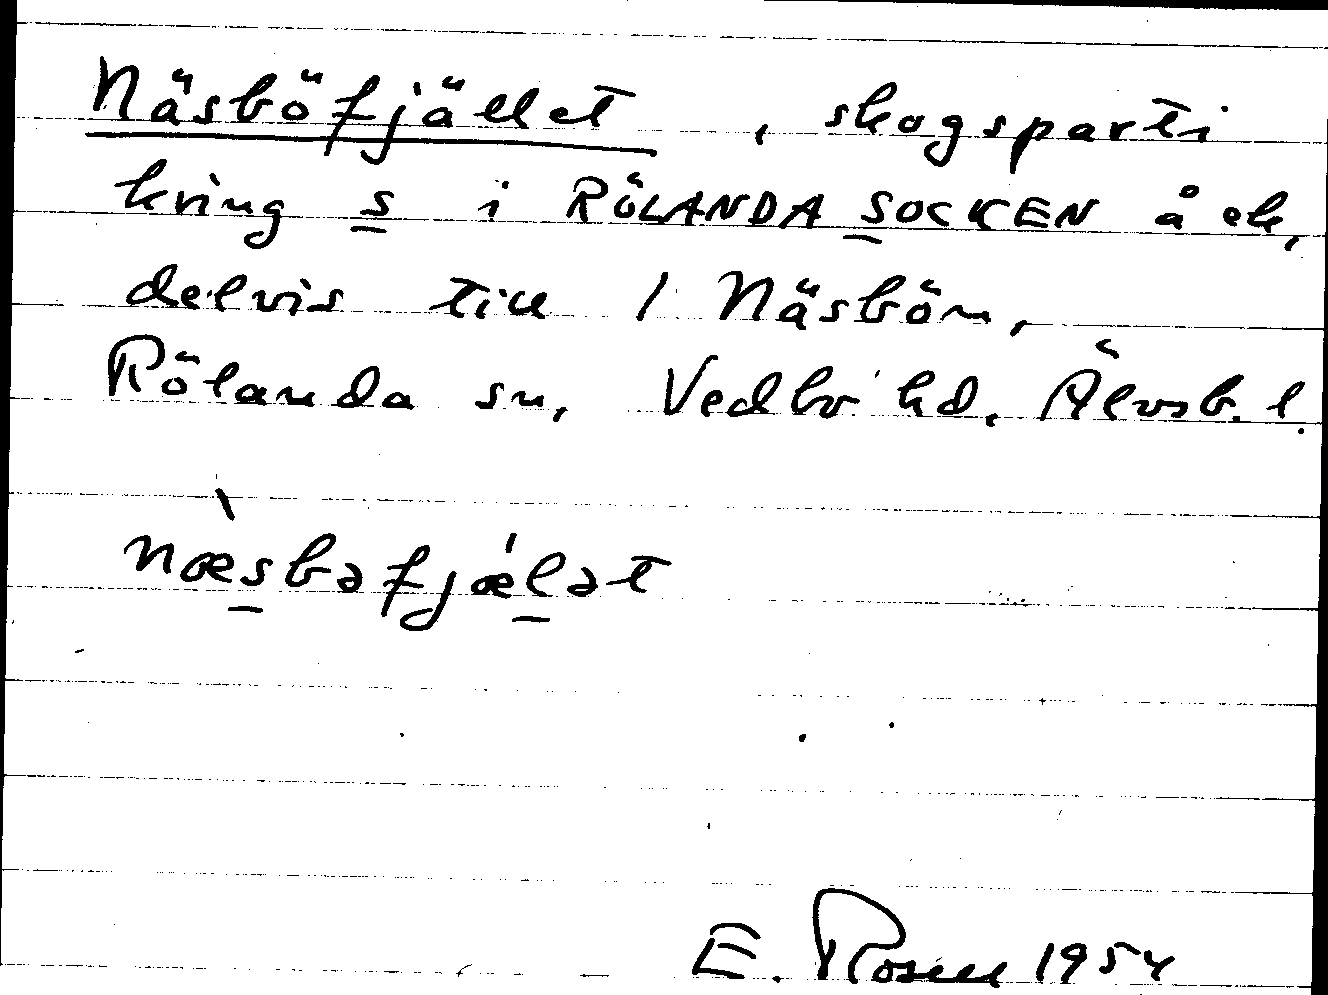 Näsböfjället, skogsparti
kring s i RÖLANDA SOCKEN å ek,
delvis till 1 Näsbön,
Rölanda sn, Vedbo hd. Älvsb. l.
næsbəfjælət
E. Rosell 1954